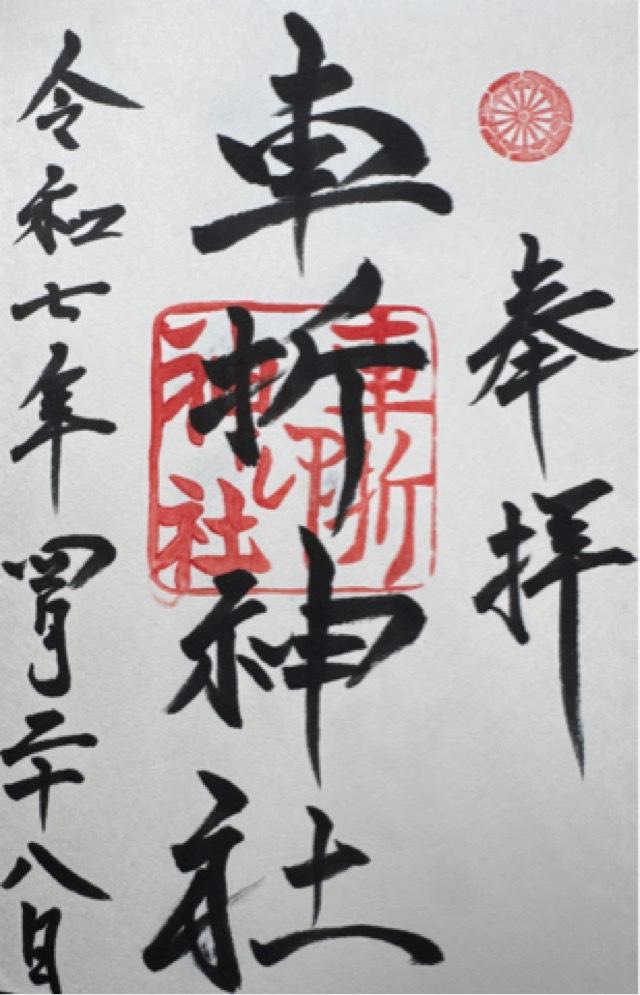 奉拝
車折神社
車折
神社
之印
令和七年四月二十八日